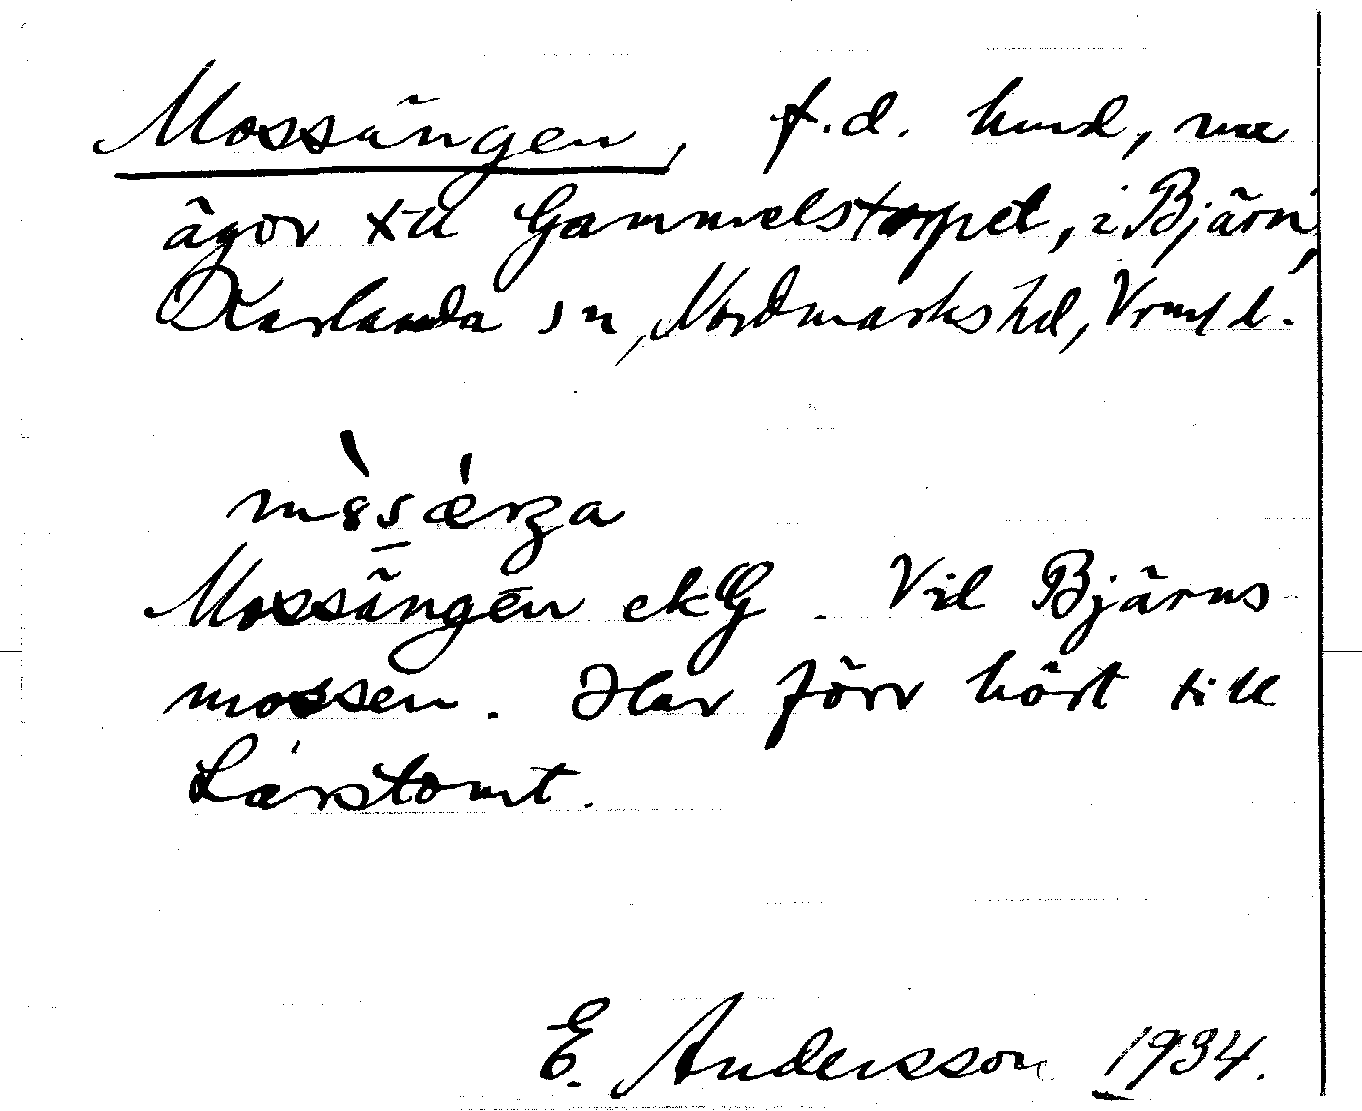 Mossängen, f.d. hmd, nu
ägor till Gammelstorpet, i Bjärn,
Karlanda sn, Nordmarks hd, Vrml d.
Mossängen ekG. Vid Bjärns
mossen. Har förr hört till
Larstomt.
E. Andersson 1934.